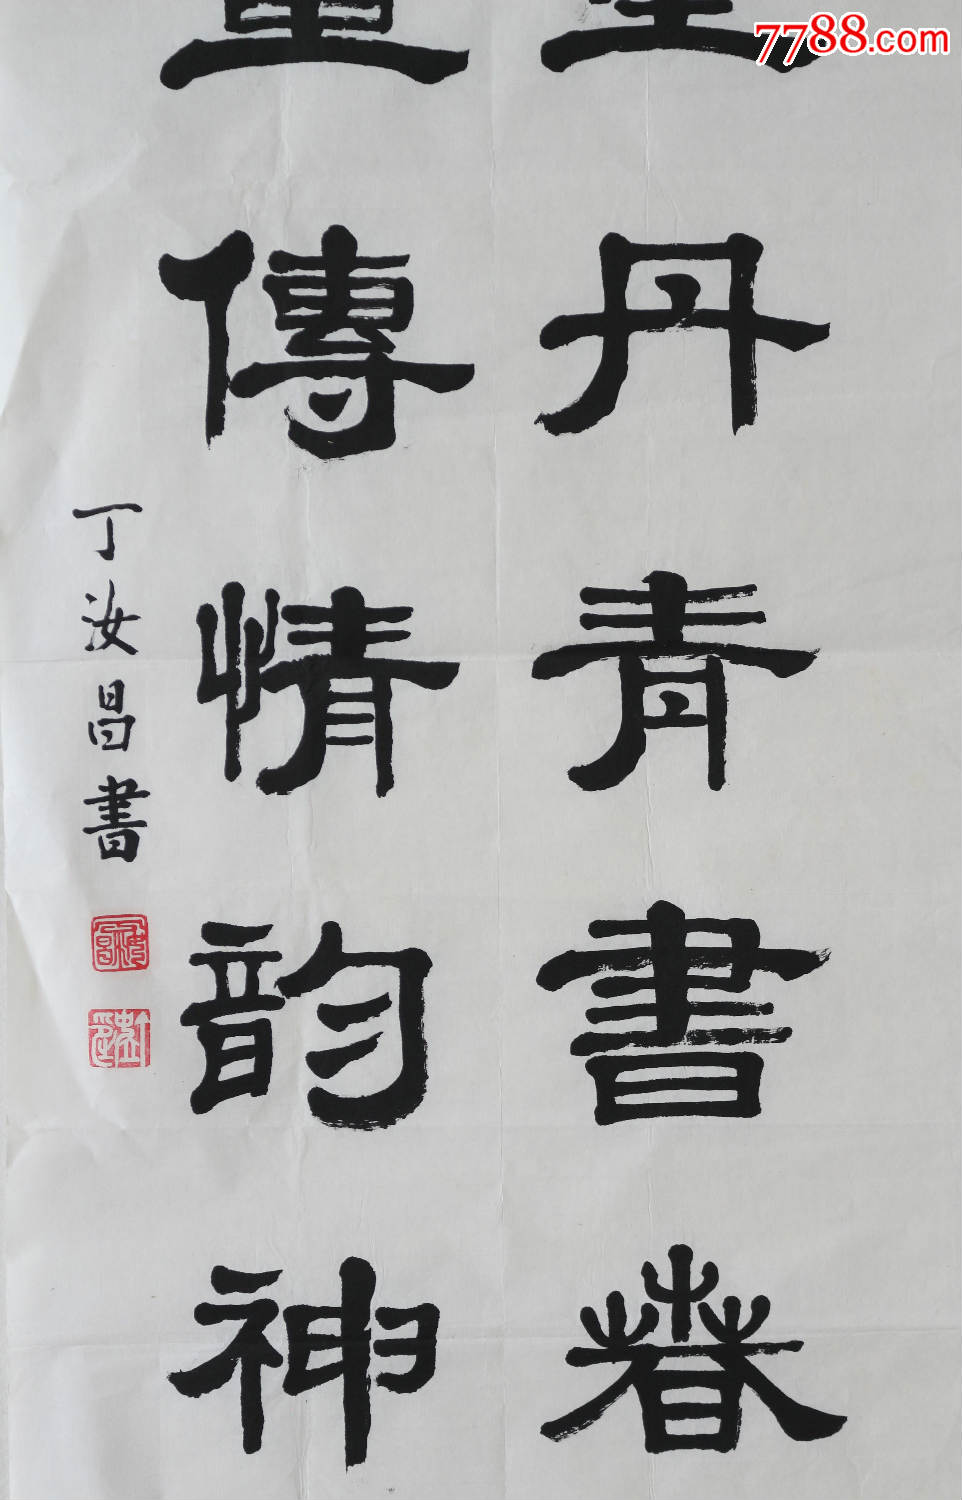 7788.com
丹青書春
傳情韵神
丁汝昌書